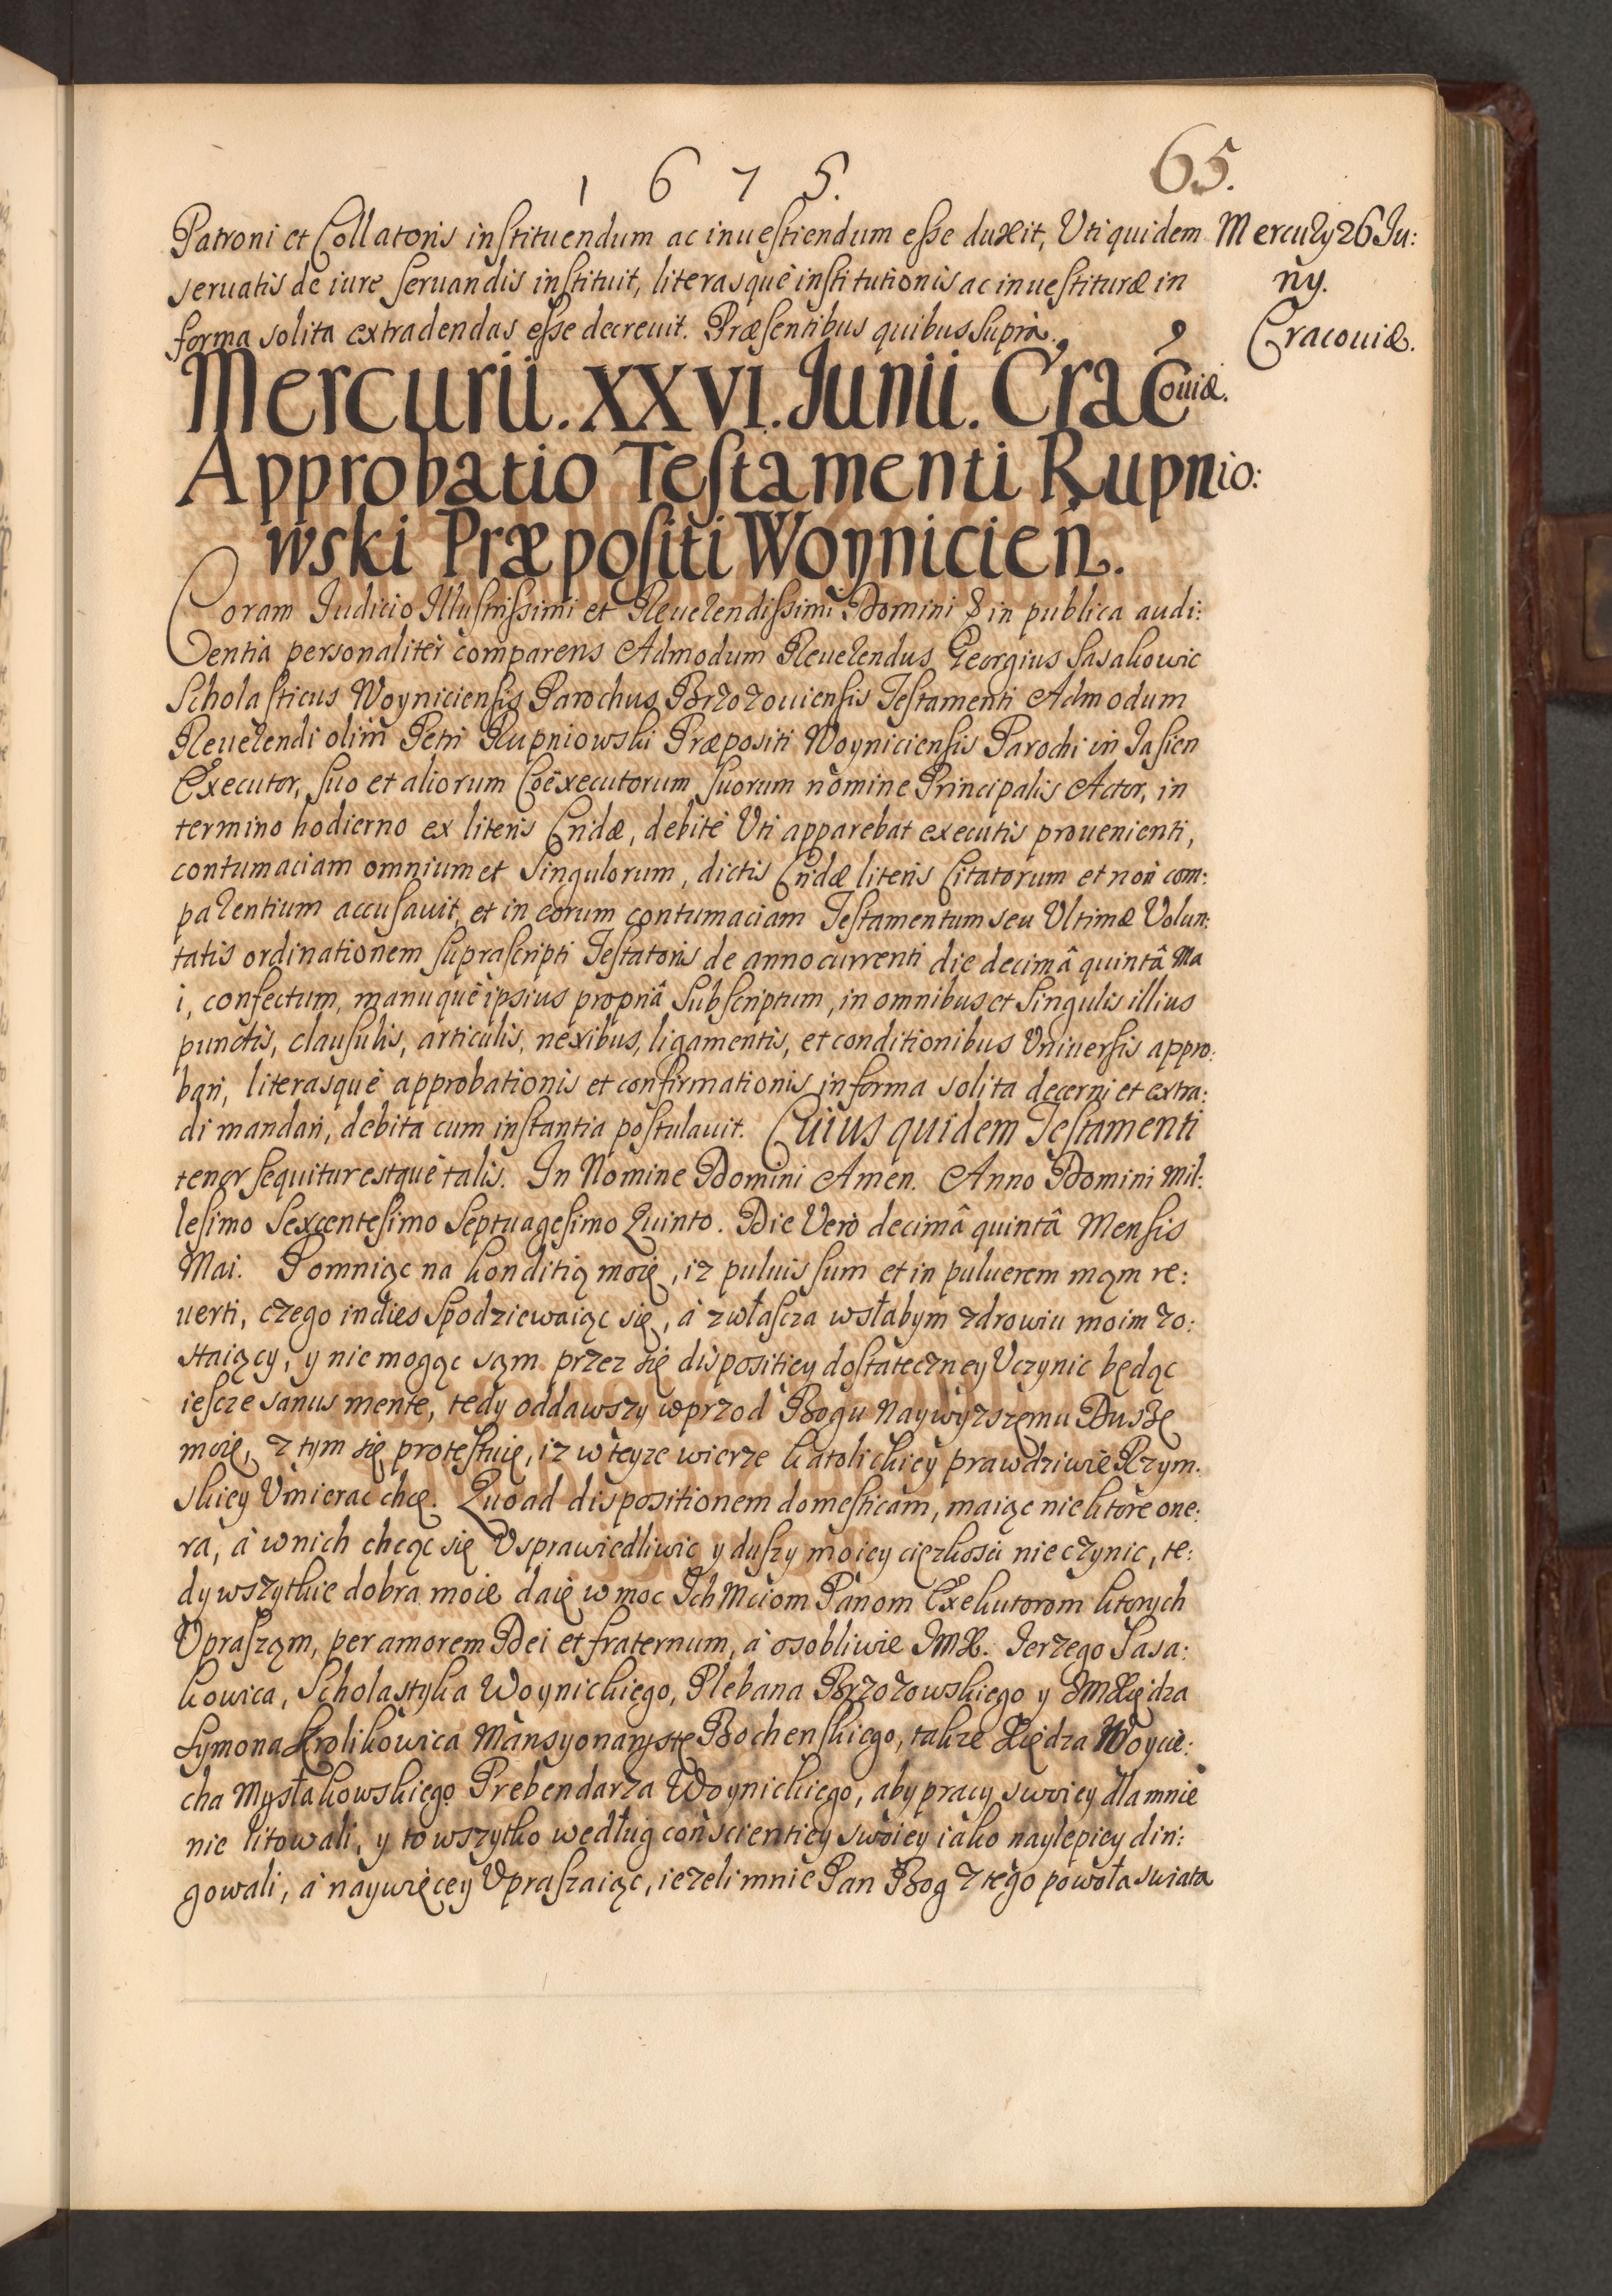 1675.
65.
Patroni et Collatoris instituendum ac inuestiendum esse duxit, Uti quidem
seruatis de iure seruandis instituit, literasque institutionis ac inuestituræ in
forma solita extradendas esse decreuit. Præsentibus quibus supra.
Mercury 26 Ju:
ny.
Cracouiæ.
Mercurii. XXVI. Junii. Cracouiæ.
Approbatio Testamenti Rupnio:
wski Præpositi Woynicien.
Coram Judicio Illustrissimi et Reuerendissimi Domini & in publica audi:
entia personaliter comparens Admodum Reuerendus Georgius Sasakowic
Scholasticus Woyniciensis Parochus Brzozouiensis Testamenti Admodum
Reuerendi olim Petri Rupniowski Præpositi Woyniciensis Parochi in Jasien
Executor, suo et aliorum Coëxecutorum suorum nomine Principalis Actor, in
termino hodierno ex literis Cridæ, debite Uti apparebat executis prouenienti,
contumaciam omnium et singulorum, dictis Cridæ literis Citatorum et non com:
parentium accusauit, et in eorum contumaciam Testamentum seu Ultimæ Volun:
tatis ordinationem suprascripti Testatoris de anno currenti die decimâ quintâ Ma
i, confectum, manuque ipsius propriâ Subscriptum, in omnibus et singulis illius
punctis, clausulis, articulis, nexibus, ligamentis, et conditionibus Uniuersis appro:
bari, literasque approbationis et confirmationis in forma solita decerni et extra:
di mandari, debita cum instantia postulauit. Cuius quidem Testamenti
tenor sequitur estque talis. In Nomine Domini Amen. Anno Domini Mil:
lesimo Sexcentesimo Septuagesimo Quinto. Die Vero decimâ quintâ Mensis
Mai. Pomniąc na konditią moię, iz puluis sum et in puluerem mąm re:
uerti, czego indies spodziewaiąc się, à zwłascza wsłabym zdrowiu moim zo:
staiący, y nie mogąc sąm przez się dispositiey dostateczney Uczynic będąc
iescze sanus mente, tedy oddawszy wprzod Bogu Naywyzszemu Duszę
moię, z tym się protestuię, iz w teyze wierze Katolickiey prawdziwie Rzym.
skiey Umierac chcę. Quoad dispositionem domesticam, maiąc niektore one:
ra, à wnich chcąc się Usprawiedliwic y duszy moiey cięzkosci nie czynic, te:
dy wszytkie dobra moie daię w moc Ich Mciom Panom Exekutorom ktorych
Uprasząm, per amorem Dei et fraternum, à osobliwie JMX. Jerzego Sasa:
kowica, Scholastyka Woynickiego, Plebana Brzozowskiego y JMXiędza
Symona Krolikowica Mansyonarystę Bochenskiego, takze Xiędza Woycie:
cha Mysłakowskiego Prebendarza Woynickiego, aby pracy swoiey dla mnie
nie litowali, y to wszytko według conscientiey swoiey iako naylepiey diri:
gowali, à naywięcey Upraszaiąc, iezeli mnie Pan Bog z tego powoła swiata